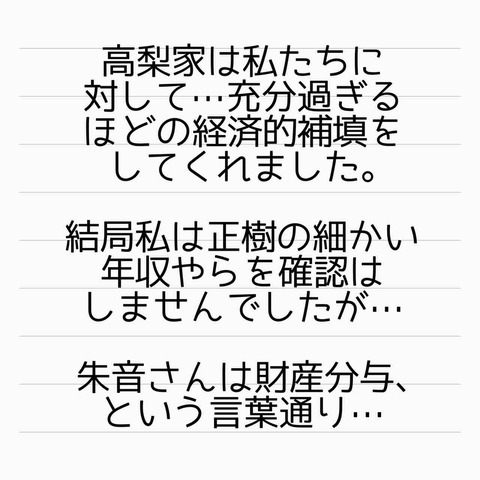 高梨家は私たちに
対して…充分過ぎる
ほどの経済的補填を
してくれました。
結局私は正樹の細かい
年収やらを確認は
しませんでしたが…
朱音さんは財産分与、
という言葉通り…